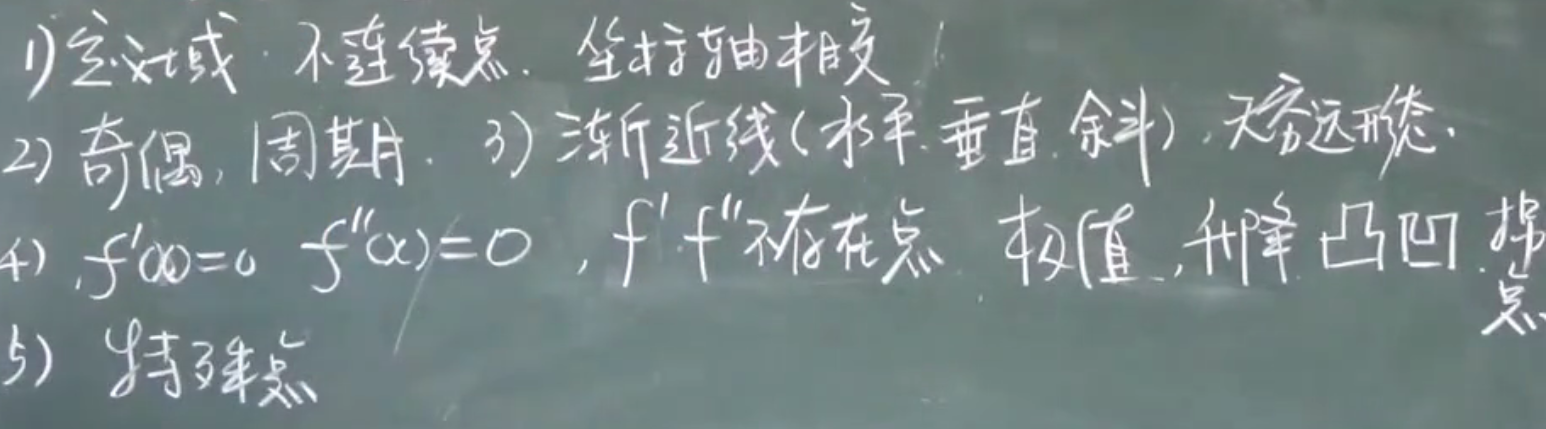 1) 定义域. 不连续点. 坐标轴相交
2) 奇偶, 周期. 3) 渐近线(水平.垂直.余斗), 无穷远形态.
4), f'(x)=0 f''(x)=0, f'.f''不存在点 极值, 升降 凸凹. 拐点
5) 特殊点